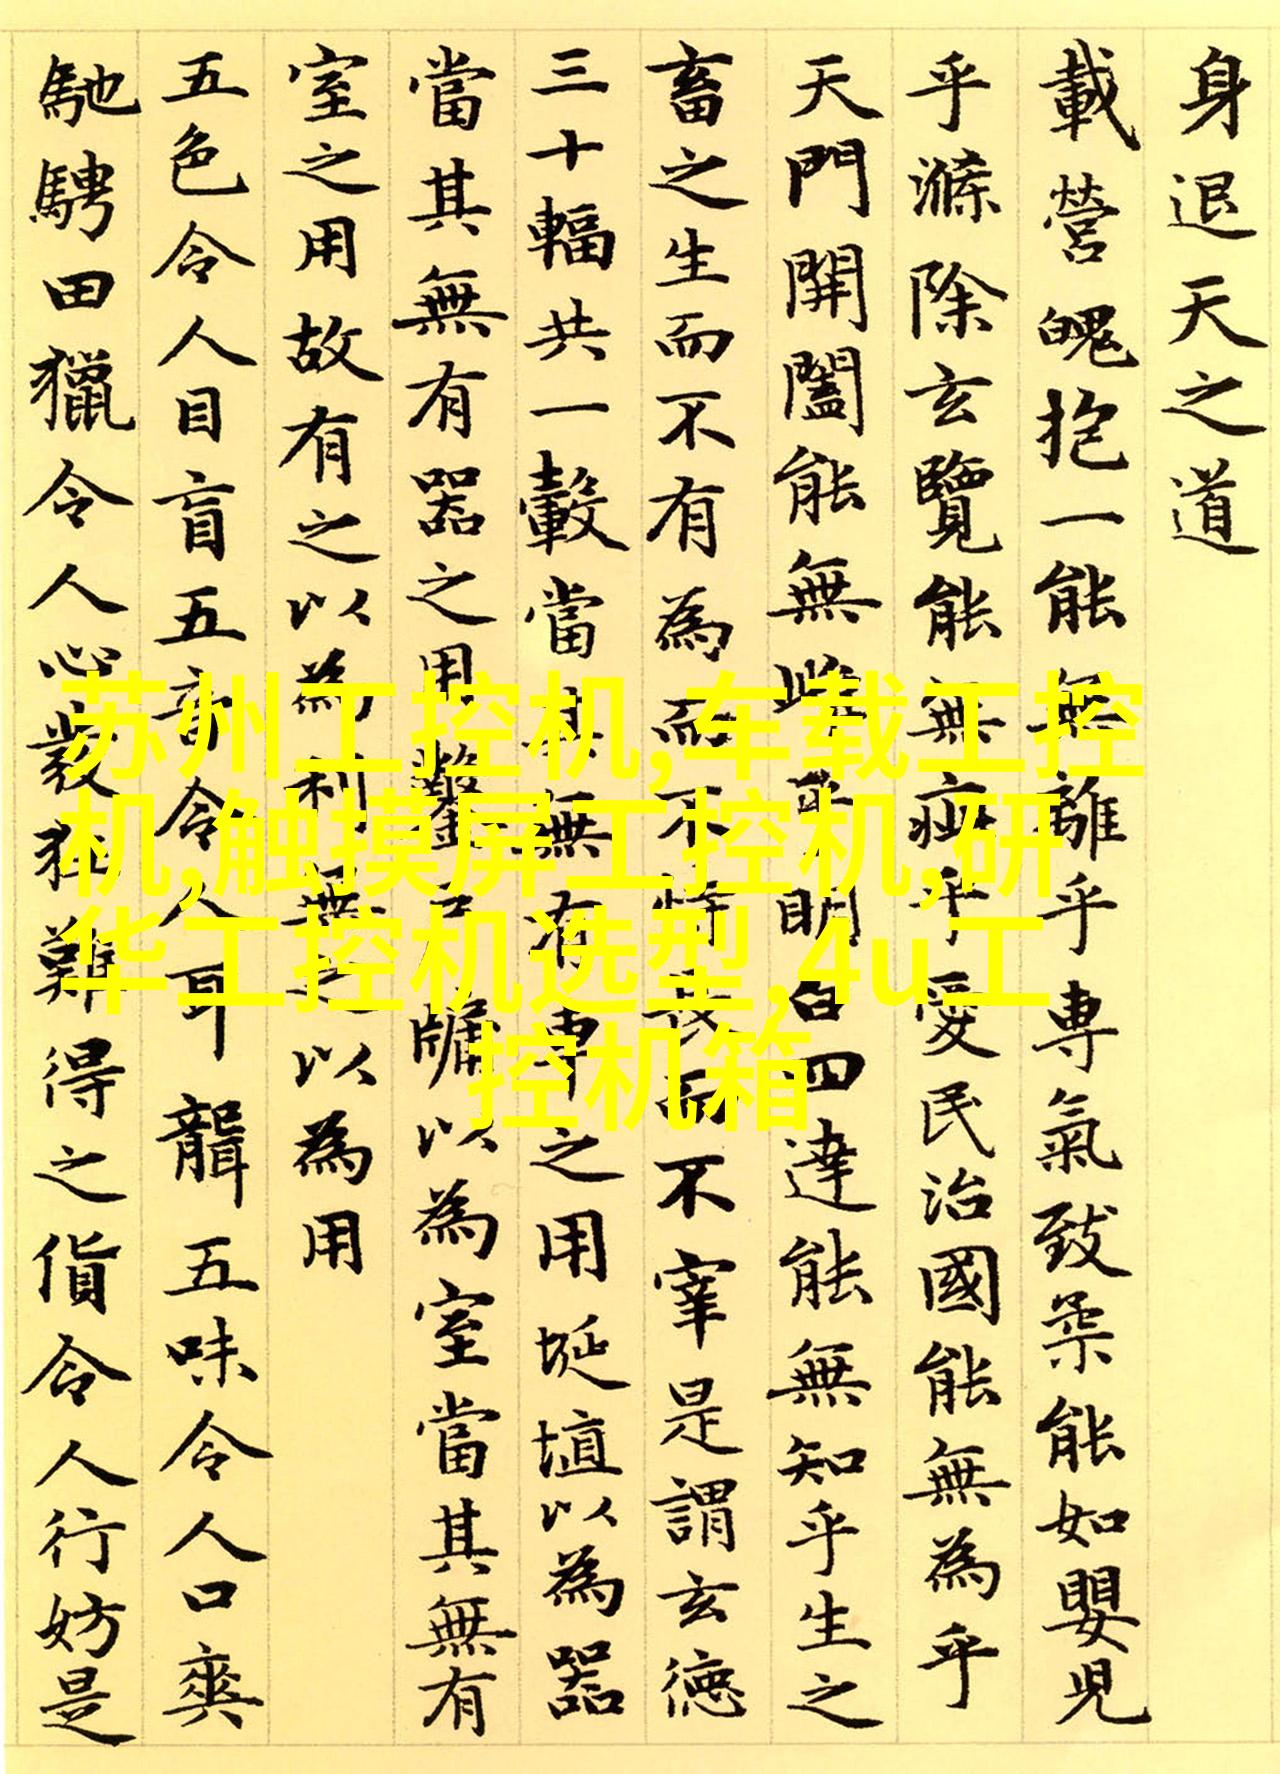 身退天之道
載營魄抱一能無離乎專氣致柔能如嬰兒
乎滌除玄覽能無疵乎愛民治國能無為乎
天門開闔能無雌乎明白四達能無知乎生之
畜之生而不有為而不恃長而不宰是謂玄德
三十輻共一轂當其無有車之用埏埴以為器
當其無有器之用鑿戶牖以為室當其無有
室之用故有之以為利無之以為用
五色令人目盲五音令人耳聾五味令人口爽
馳騁田獵令人心發狂難得之貨令人行妨是
苏州工控机,车载工控
机,触摸屏工控机,研
华工控机选型,4u工
控机箱